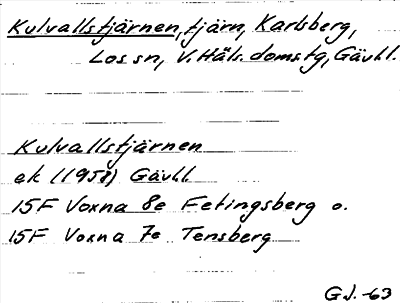 Kulvallstjärnen, tjärn, Karlsberg,
Los sn, V. Häls. domstg, Gävl.l.
Kulvallstjärnen
ek (1958) Gävl.l
15F Voxna 8e Fetingsberg o.
15F Voxna 7e Tensberg
G.J. -63